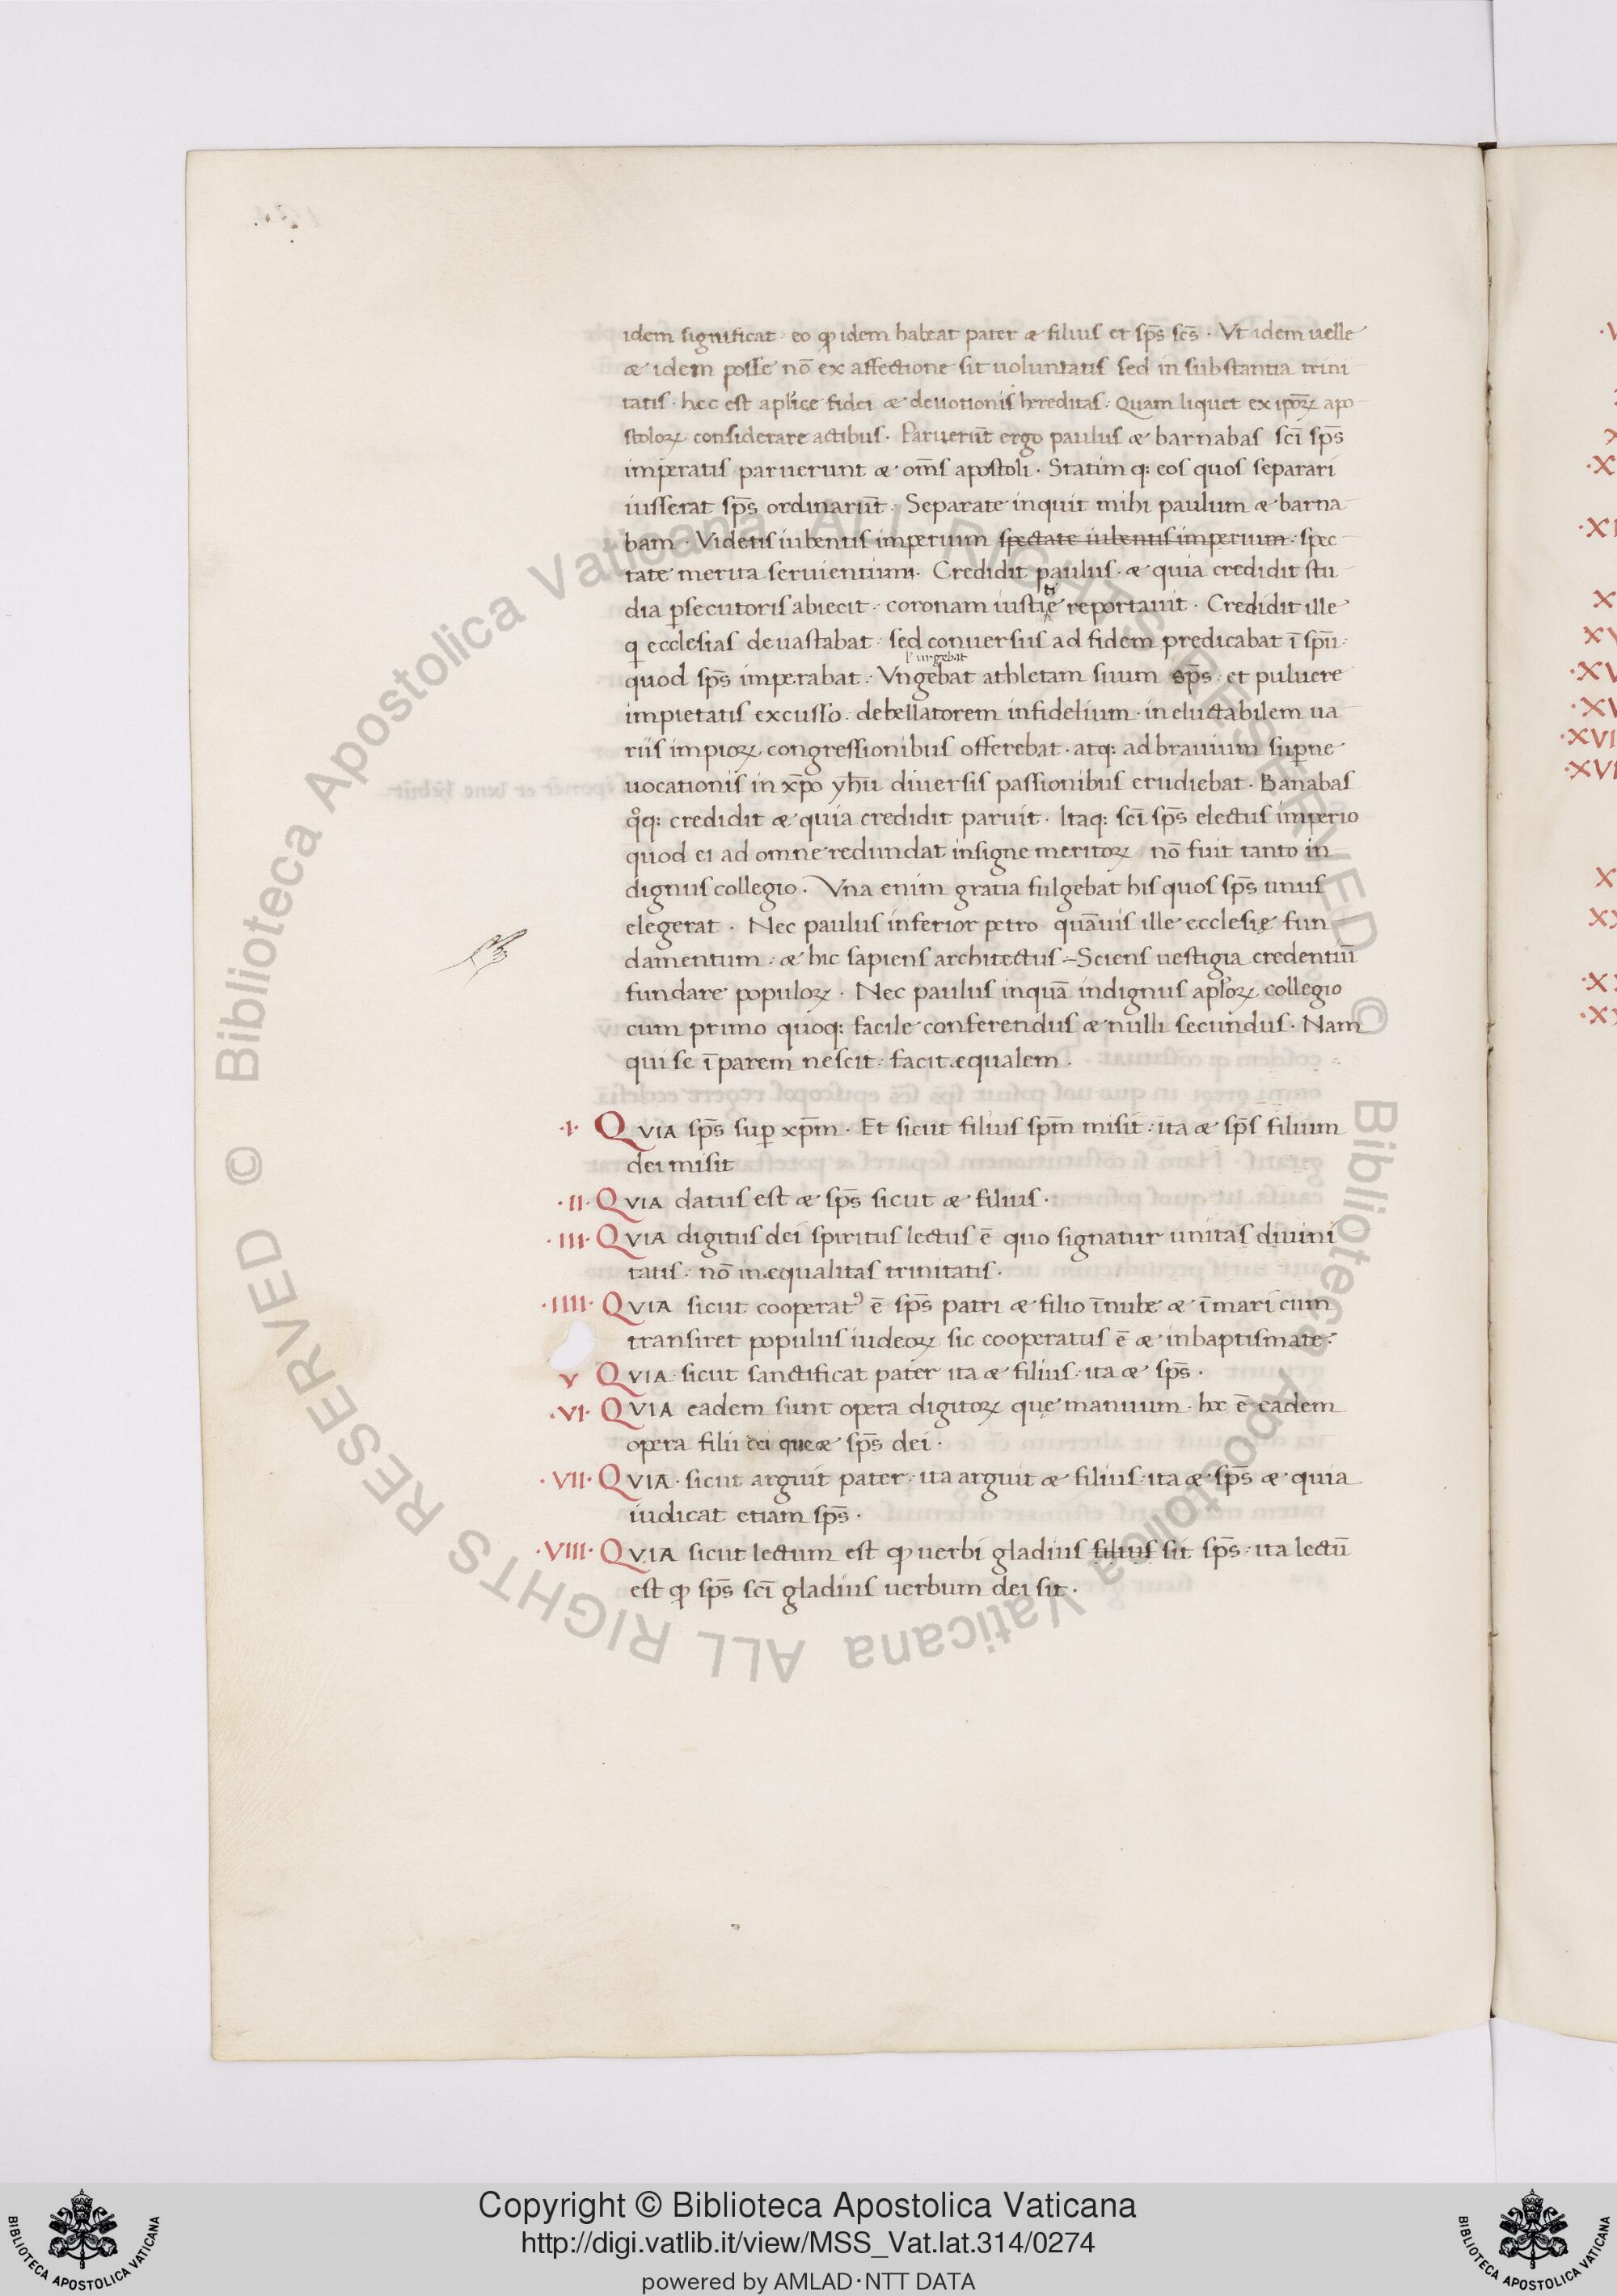 idem significat · eo ꝙ idem habeat pater & filius et sp̄s sc̄s · Vt idem uelle
& idem posse nō ex affectione sit uoluntatis sed in substantia trini
tatis · hec est aplice fidei & deuotionis hereditas · Quam liquet ex ipoꝝ apo
stoloꝝ considerare actibus · Paruerūt ergo paulus & barnabas scī sp̄s
imperatis paruerunt & om̄s apostoli · Statim q: eos quos separari
iusserat sp̄s ordinarūt · Separate inquit mihi paulum & barna
bam · Videtis iubentis imperium spectate iubentis imperium · spec
tate merita seruientium · Credidit paulus · & quia credidit stu
dia ꝑsecutoris abiecit · coronam iustię reportauit · Credidit ille
ti
q ecclesias deuastabat · sed conuersus ad fidem predicabat ī spū ·
l' urgebat
quod sp̄s imperabat · Vngebat athletam suum sp̄s · et puluere
impietatis excusso · debellatorem infidelium · ineluctabilem ua
riis impioꝝ congressionibus offerebat · atq: ad brauium suꝑne
uocationis in xp̄o yhū diuersis passionibus erudiebat · Banabas
qͦq: credidit & quia credidit paruit · Itaq: scī sp̄s electus imperio
quod ei ad omne redundat insigne meritoꝝ nō fuit tanto in
dignus collegio · Vna enim gratia fulgebat his quos sp̄s unus
elegerat · Nec paulus inferior petro quāuis ille ecclesię fun
damentum · & hic sapiens architectus – Sciens uestigia credentiū
fundare populoꝝ · Nec paulus inquā indignus apl'oꝝ collegio
cum primo quoq: facile conferendus & nulli secundus · Nam
qui se īparem nescit · facit ęqualem ·
·I· QVIA sp̄s suꝑ xp̄m · Et sicut filius sp̄m misit · ita & sp̄s filium
dei misit
·II· QVIA datus est & sp̄s sicut & filius ·
·III· QVIA digitus dei spiritus lectus ē quo signatur unitas diuini
tatis · nō inęqualitas trinitatis ·
·IIII· QVIA sicut cooperatꝰ ē sp̄s patri & filio ī nube & ī mari cum
transiret populus iudeoꝝ sic cooperatus ē & in baptismate ·
V QVIA sicut sanctificat pater ita & filius · ita & sp̄s ·
·VI· QVIA eadem sunt opera digitoꝝ quę manuum · hoc ē eadem
opera filii dei que & sp̄s dei ·
·VII· QVIA · sicut arguit pater · ita arguit & filius · ita & sp̄s & quia
iudicat etiam sp̄s ·
·VIII· QVIA sicut lectum est ꝙ uerbi gladius filius sit sp̄s · ita lectū
est ꝙ sp̄s scī gladius uerbum dei sit ·
© Biblioteca Apostolica Vaticana ALL RIGHTS RESERVED
© Biblioteca Apostolica Vaticana ALL RIGHTS RESERVED
Copyright © Biblioteca Apostolica Vaticana
http://digi.vatlib.it/view/MSS_Vat.lat.314/0274
powered by AMLAD·NTT DATA
BIBLIOTECA APOSTOLICA VATICANA
BIBLIOTECA APOSTOLICA VATICANA